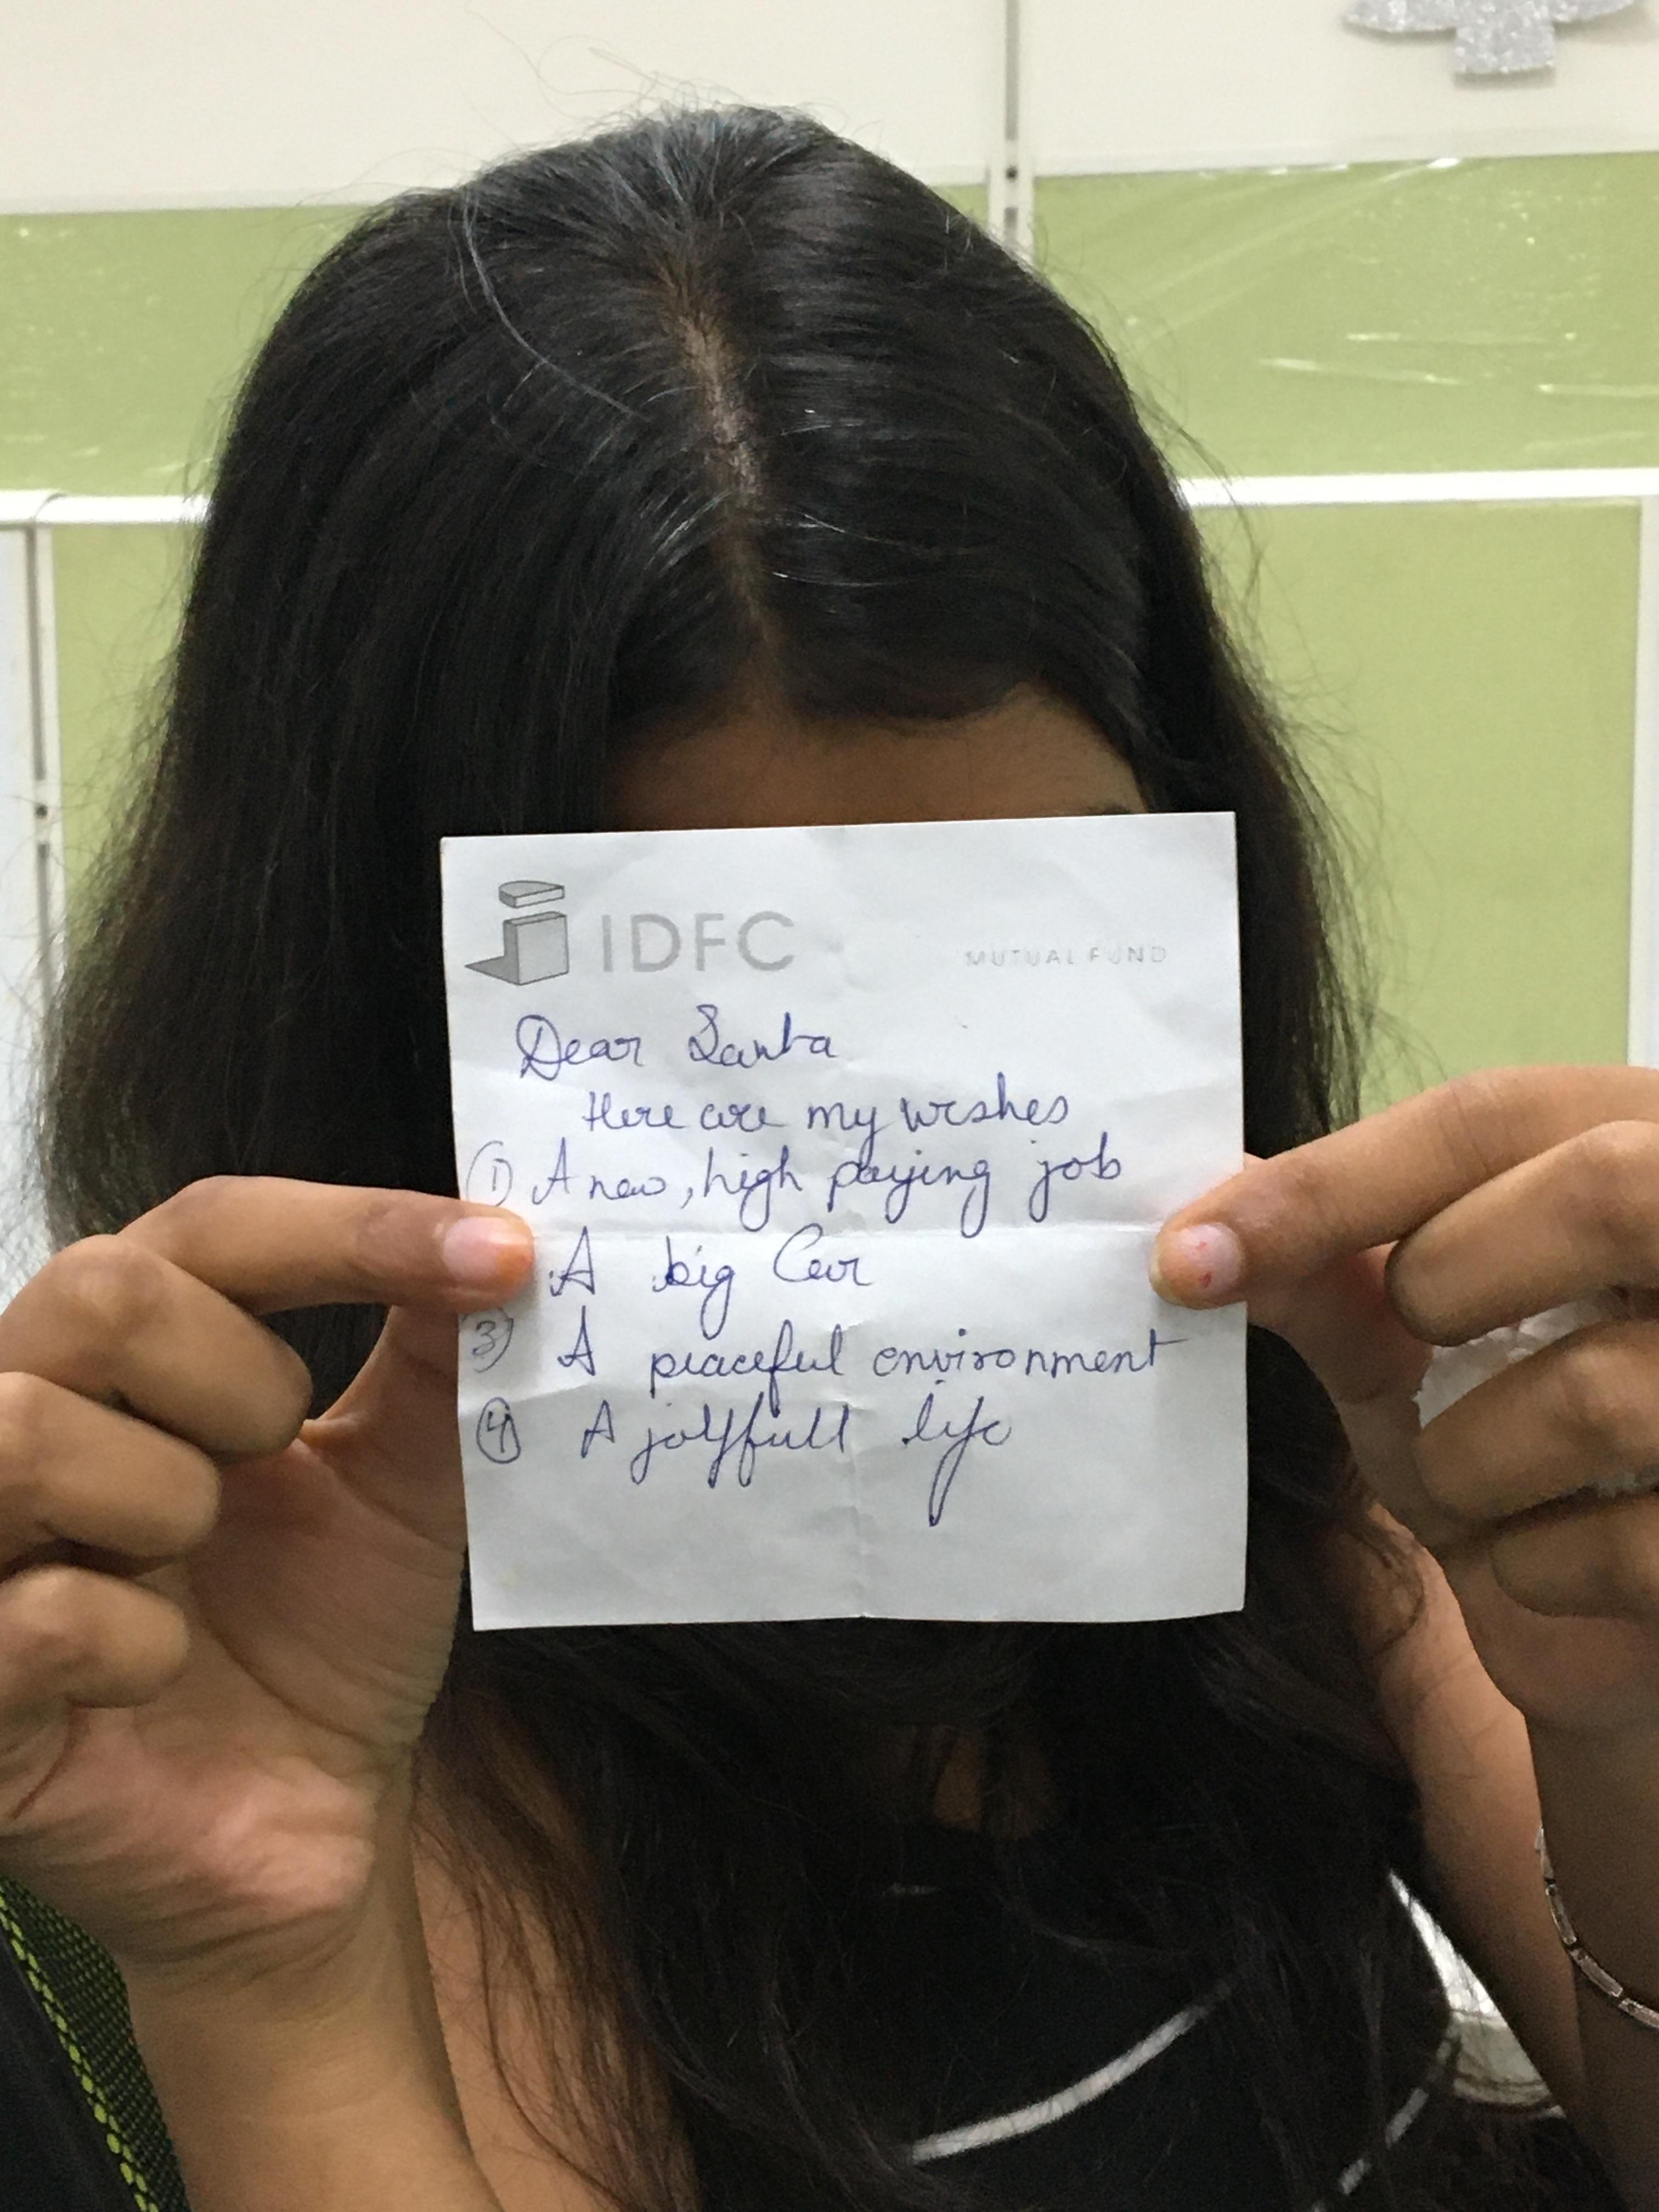 IDFC MUTUAL FUND
Dear Santa
Here are my wishes
① A new, high paying job
A big Car
③ A peaceful environment
④ A joyfull life